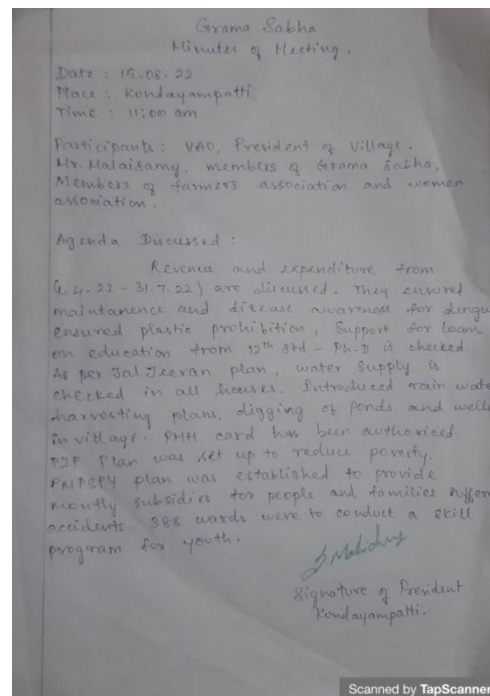 Grama Sabha
Minutes of Meeting.
Date : 15.08.22
Place : Kondayampatti
Time : 11:00 am
Participants : VAO, President of Village.
Mr. Malaisamy. members of Grama Sabha,
Members of farmers association and women
association.
Agenda Discussed :
Revenue and expenditure from
4.22 - 31.7.22) are discussed. They ensured
maintanence and disease awareness for dengu
ensured plastic prohibition, Support for loans
on education from 12th std - Ph.D is checked
As per Jal Jeevan plan, water supply is
checked in all houses. Introduced rain wate
harvesting plans, digging of ponds and wells
in village. PHH card has been authorised
Plan was set up to reduce poverty.
plan was established to provide
montly subsidies for people and families suffer
accidents. 388 wards were to conduct a skill
program for youth.
Signature of President
Kondayampatti.
Scanned by TapScanner